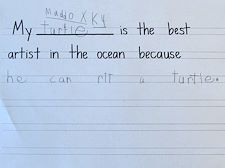 My turtle is the best
artist in the ocean because
he can a turtle.